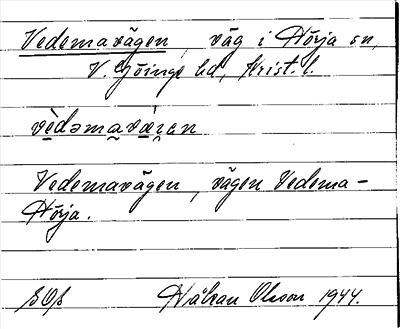 Vedemavägen, väg i Hörja sn,
V. Göinge hd, Krist. l.
vèdəmavæ̀i̯ən
Vedemavägen, vägen Vedema-
Hörja.
Håkan Olsson 1944.